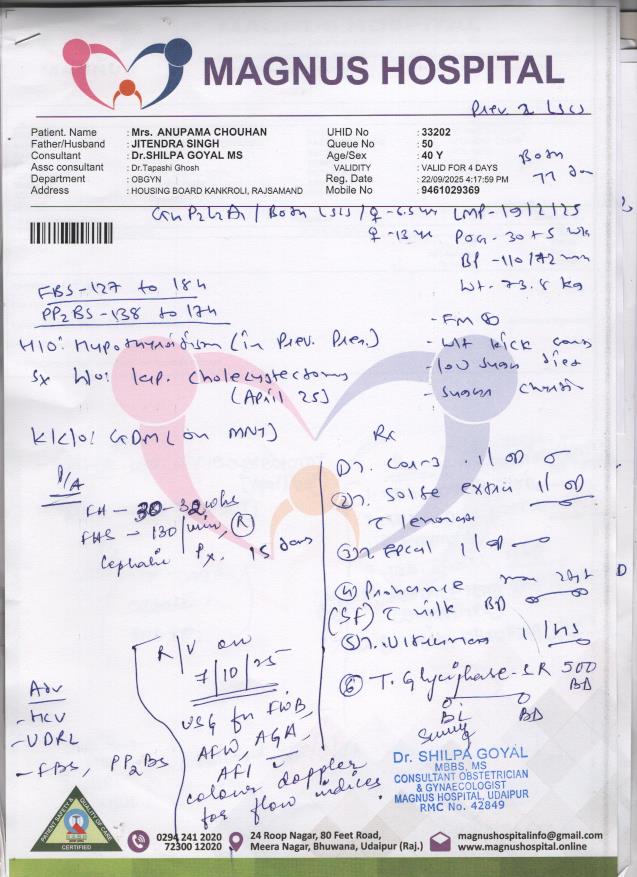 MAGNUS HOSPITAL
Prev. 2 LSCS
Patient. Name : Mrs. ANUPAMA CHOUHAN UHID No : 33202
Father/Husband : JITENDRA SINGH Queue No : 50
Consultant : Dr.SHILPA GOYAL MS Age/Sex : 40 Y
Assc consultant : Dr.Tapashi Ghosh VALIDITY : VALID FOR 4 DAYS
Department : OBGYN Reg. Date : 22/09/2025 4:17:59 PM
Address : HOUSING BOARD KANKROLI, RAJSAMAND Mobile No : 9461029369
Both
P2L2A1 / Both LSCS / ♀ - 6.5 yr LMP - 19/2/25
♀ - 13 yr POG - 30+5 wks
BP - 110/72 mm
Wt. 73.8 kg
FBS - 127 to 184
PP2BS - 138 to 174
H/O: Hypothyroidism (in Prev. Preg.)
- FM
- kick count
- low sugar diet
- sugar
Sx H/O: lap. Cholecystectomy
(April 25)
K/C/O: GDM (on MNT)
Rx
P/A
FH - 30-32 wks
FHS - 130/min, (R)
Cephalic Px. 15 days
① T. 1/ OD
② T. extra 1/ OD
③ T. 1/ OD
④
(SF) c milk BD
⑤ T. 1/HS
⑥ T. Glyciphase-SR 500
BD
BL BD
R/V on
7/10/25
USG for FWB,
AFW, AGA,
AFI c
colour doppler
for flow indices
Adv
- HCV
- VDRL
- FBS, PP2BS
Dr. SHILPA GOYAL
MBBS, MS
CONSULTANT OBSTETRICIAN
& GYNAECOLOGIST
MAGNUS HOSPITAL, UDAIPUR
RMC No. 42849
PATIENT SAFETY & QUALITY OF CARE
CERTIFIED
0294 241 2020
72300 12020
24 Roop Nagar, 80 Feet Road,
Meera Nagar, Bhuwana, Udaipur (Raj.)
magnushospitalinfo@gmail.com
www.magnushospital.online